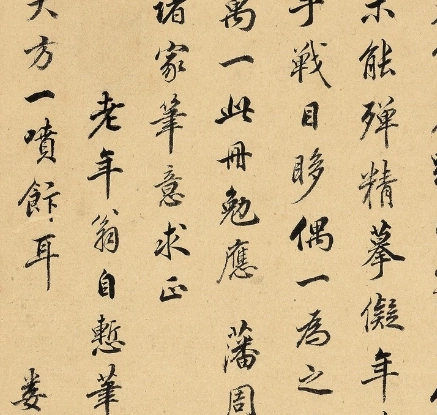 能殫精摹儗年
手戰目眵偶一為之
萬一此冊勉應 藩周
諸家筆意求正
老年翁自慙筆
大方一噴飰耳 婁